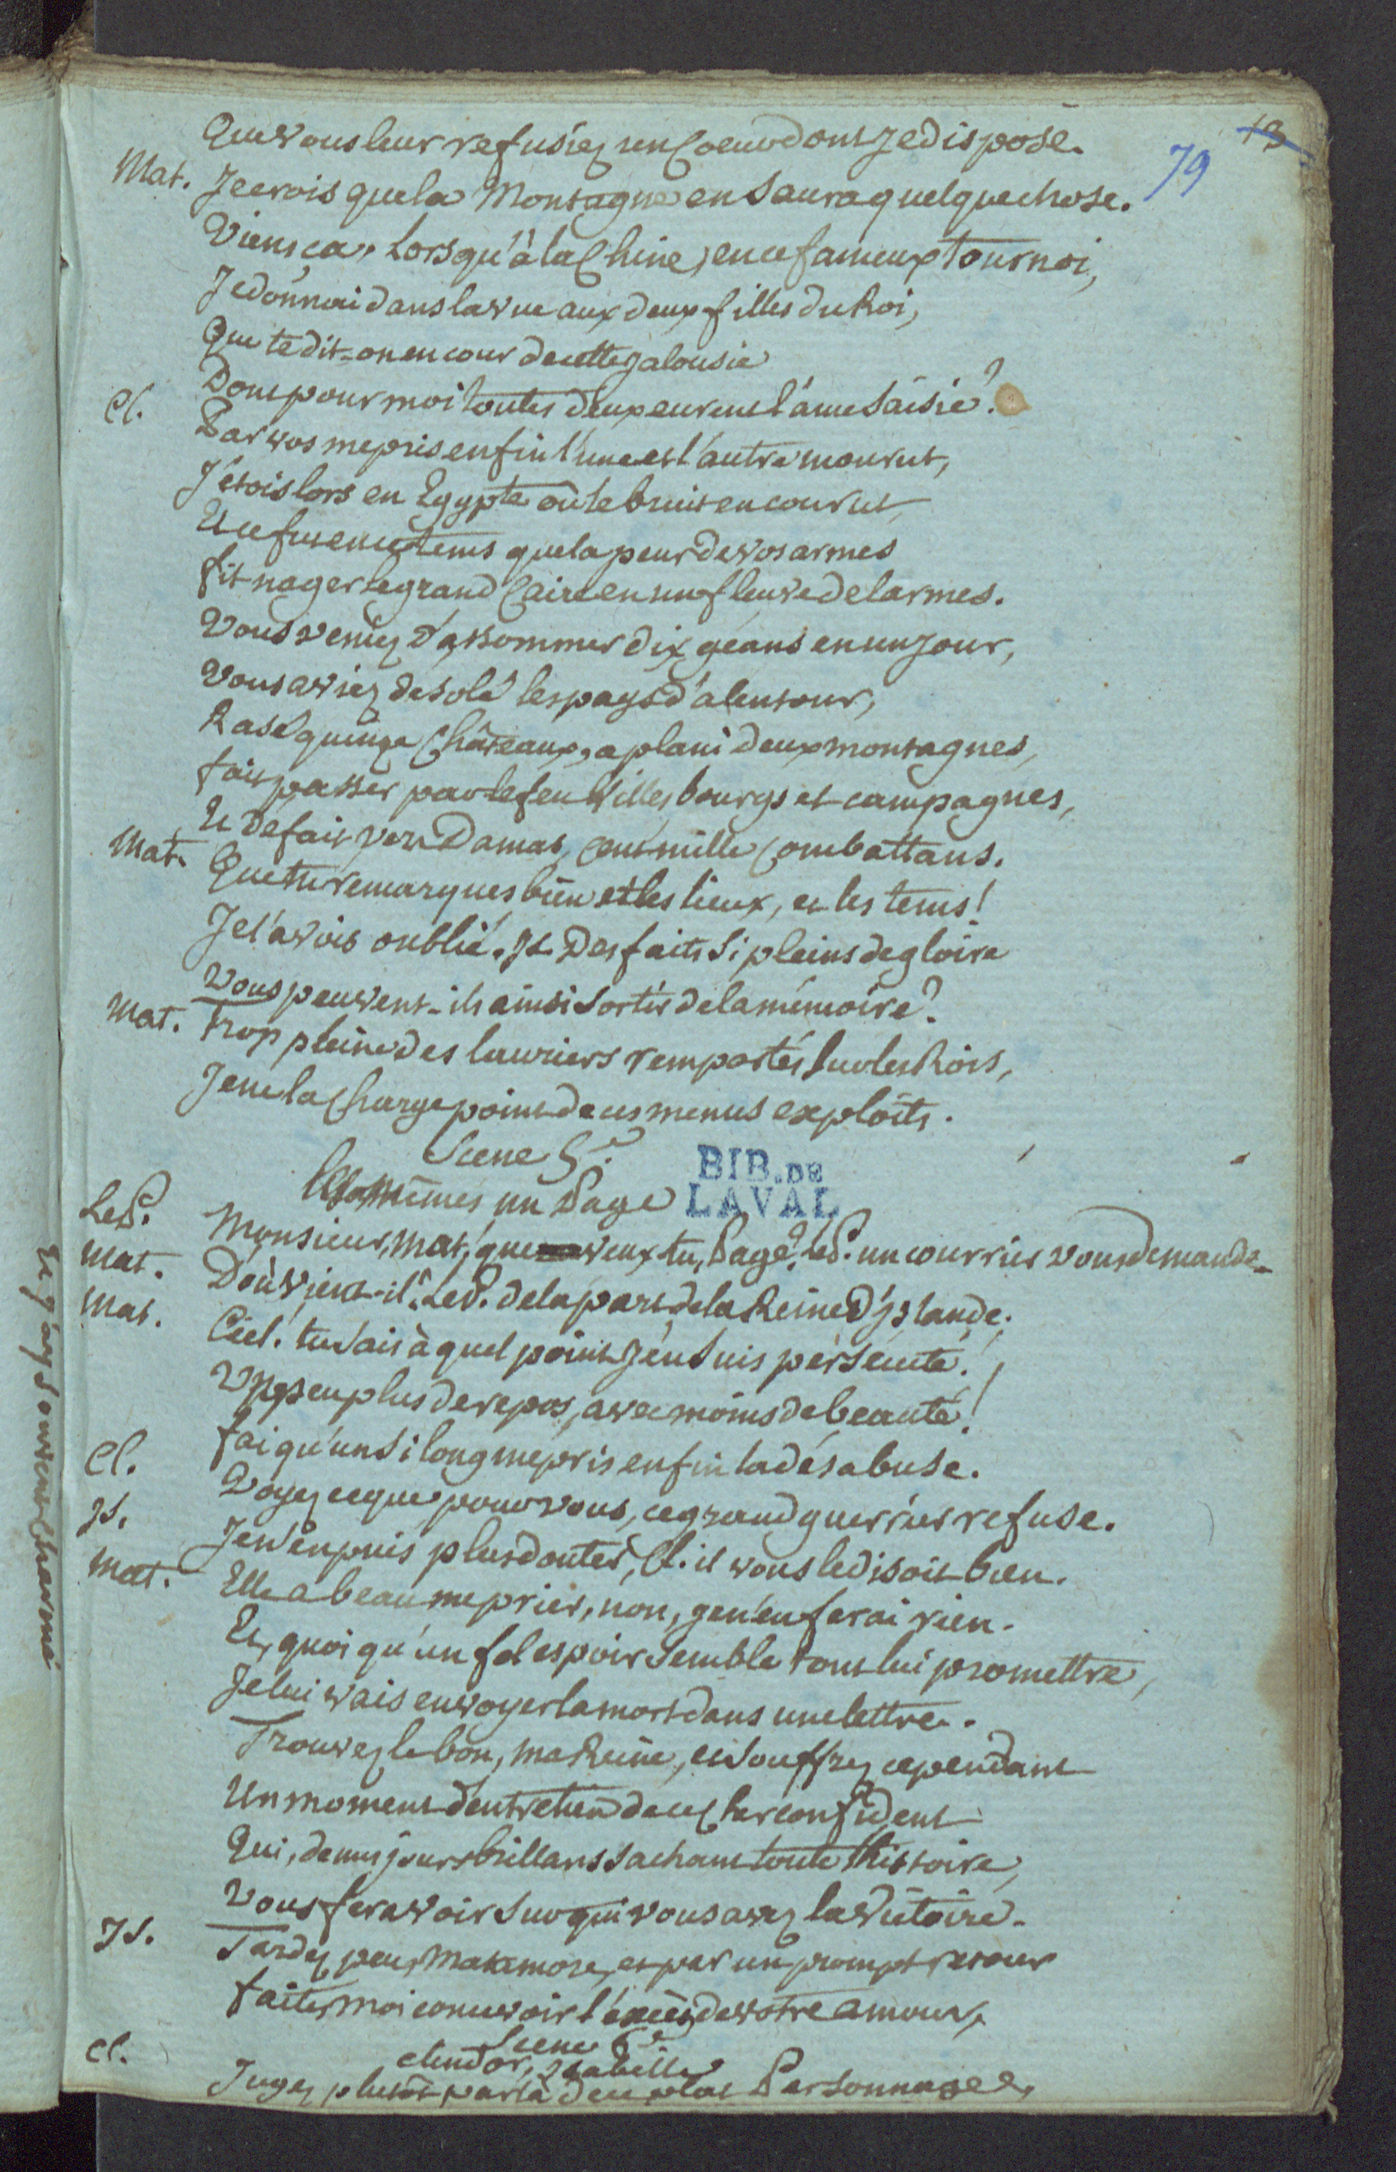 13
79
Que vous leur refusiez un Coeur dont je dispose.
Mat. Je crois que la Montagne en Saura quelque chose.
Viens ca, Lorsqu'à la Chine, en ce fameux Tournoi,
Je donnai dans la vue aux deux filles du Roi,
Que te dit-on en cour de cette jalousie
Dont pour moi toutes deux eurent l'ame Saisie?
Cl. Par vos mepris enfin l'une et l'autre mourut,
J'étois lors en Egypte où le bruit en courut,
Et ce fut en ce tems que la peur de vos armes
fit nager le grand Caire en un fleuve de larmes.
Vous veniez d'assommer dix géans en un jour,
Vous aviez desolé les pays d'alentour,
Rasé quinze Châteaux, aplani deux montagnes,
fait passer par le feu Villes bourgs et campagnes,
Et defait vers Damas, cent mille Combattans.
Mat. Que tu remarques bien et les lieux, et les tems!
Je l'avois oublié. Is. Des faits Si pleins de gloire
Vous peuvent-ils ainsi Sortir de la mémoire?
Mat. Trop pleine des lauriers remportés Sur les Rois,
Je ne la Charge point de ces menus exploits.
Scene 5e.
Les mêmes un Page
BIB. DE
LAVAL
Le P. Monsieur, Mat, que veux tu, Page? Le P. un courrier vous demande.
Mat. D'où vient-il? Le P. de la part de la Reine d'Islande.
Mat. Ciel. tu Sais à quel point J'en Suis persecuté!
Un peu plus de repos, avec moins de beauté!
fai qu'un Si long mepris enfin la désabuse.
Cl. Voyez ce que pour vous, ce grand guerrier refuse.
Is. Je n'en puis plus douter, Cl. il vous le disoit bien.
Mat. Elle a beau me prier, non, je n'en ferai rien.
Et, quoi qu'un fol espoir Semble tout lui promettre,
Je lui vais envoyer la mort dans une lettre.
Trouvez le bon, ma Reine, et Souffrez cependant
Un moment d'entretien de ce Cher confident
Qui, de mes jours brillans Sachant toute l'histoire,
Vous fera voir Sur qui vous avez la Victoire.
Is. Tardez peu, Matamore, et par un prompt retour
faites moi concevoir l'excès de votre amour,
Scene 6e
Clindor, Isabelle
Cl. Jugez plutôt par là de ce plat Personnage,
Et j'ay Souvent charmé